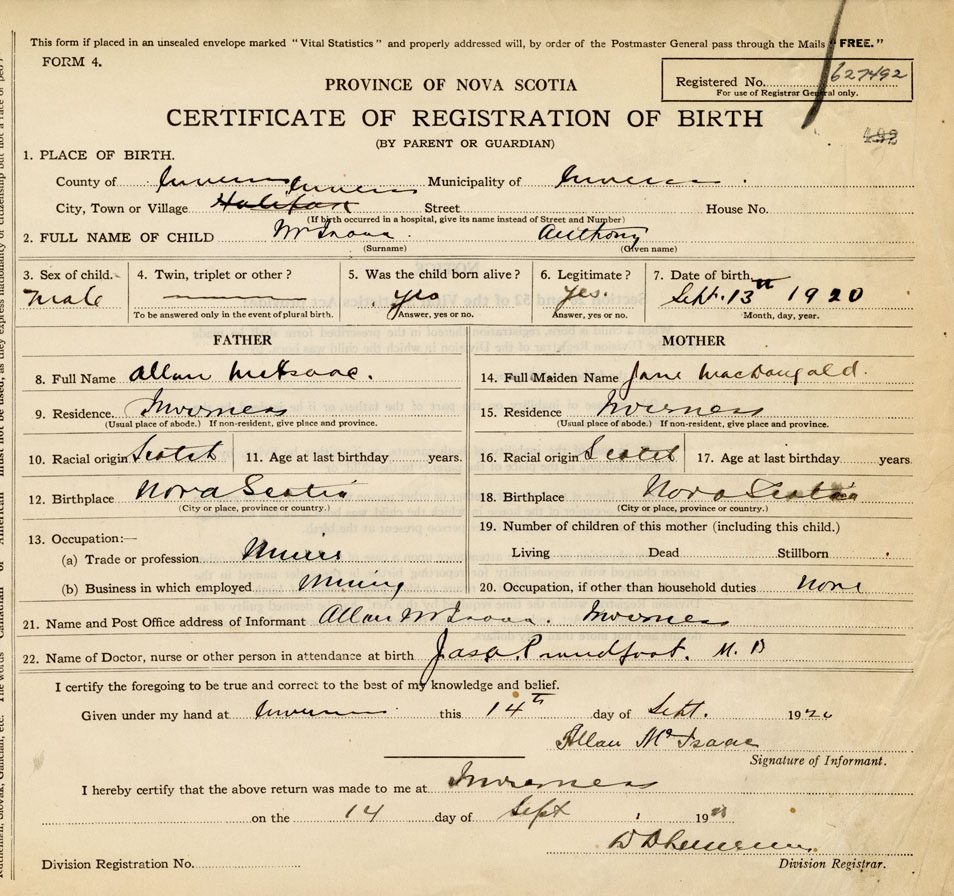 This form if placed in an unsealed envelope marked "Vital Statistics" and properly addressed will, by order of the Postmaster General pass through the Mails "FREE."
FORM 4.
Registered No. 627492
For use of Registrar General only.
PROVINCE OF NOVA SCOTIA
CERTIFICATE OF REGISTRATION OF BIRTH
492
(BY PARENT OR GUARDIAN)
1. PLACE OF BIRTH.
County of Inverness Inverness Municipality of Inverness
City, Town or Village Halifax Street House No.
(If birth occurred in a hospital, give its name instead of Street and Number)
2. FULL NAME OF CHILD McIsaac Anthony
(Surname) (Given name)
3. Sex of child. 4. Twin, triplet or other? 5. Was the child born alive? 6. Legitimate? 7. Date of birth,
Male yes yes. Sept. 13th 1920
To be answered only in the event of plural birth. Answer, yes or no. Answer, yes or no. Month, day, year.
FATHER MOTHER
8. Full Name Allan McIsaac. 14. Full Maiden Name Jane MacDougald.
9. Residence. Inverness 15. Residence Inverness
(Usual place of abode.) If non-resident, give place and province. (Usual place of abode.) If non-resident, give place and province.
10. Racial origin Scotch 11. Age at last birthday years. 16. Racial origin Scotch 17. Age at last birthday years.
12. Birthplace Nova Scotia 18. Birthplace Nova Scotia
(City or place, province or country.) (City or place, province or country.)
19. Number of children of this mother (including this child.)
13. Occupation:—
(a) Trade or profession Miner Living Dead Stillborn
(b) Business in which employed Mining 20. Occupation, if other than household duties None
21. Name and Post Office address of Informant Allan McIsaac. Inverness
22. Name of Doctor, nurse or other person in attendance at birth Jas. Proudfoot. M.D
I certify the foregoing to be true and correct to the best of my knowledge and belief.
Given under my hand at Inverness this 14th day of Sept. 1920
Allan McIsaac
Signature of Informant.
I hereby certify that the above return was made to me at Inverness
on the 14 day of Sept 19
Division Registration No. Division Registrar.